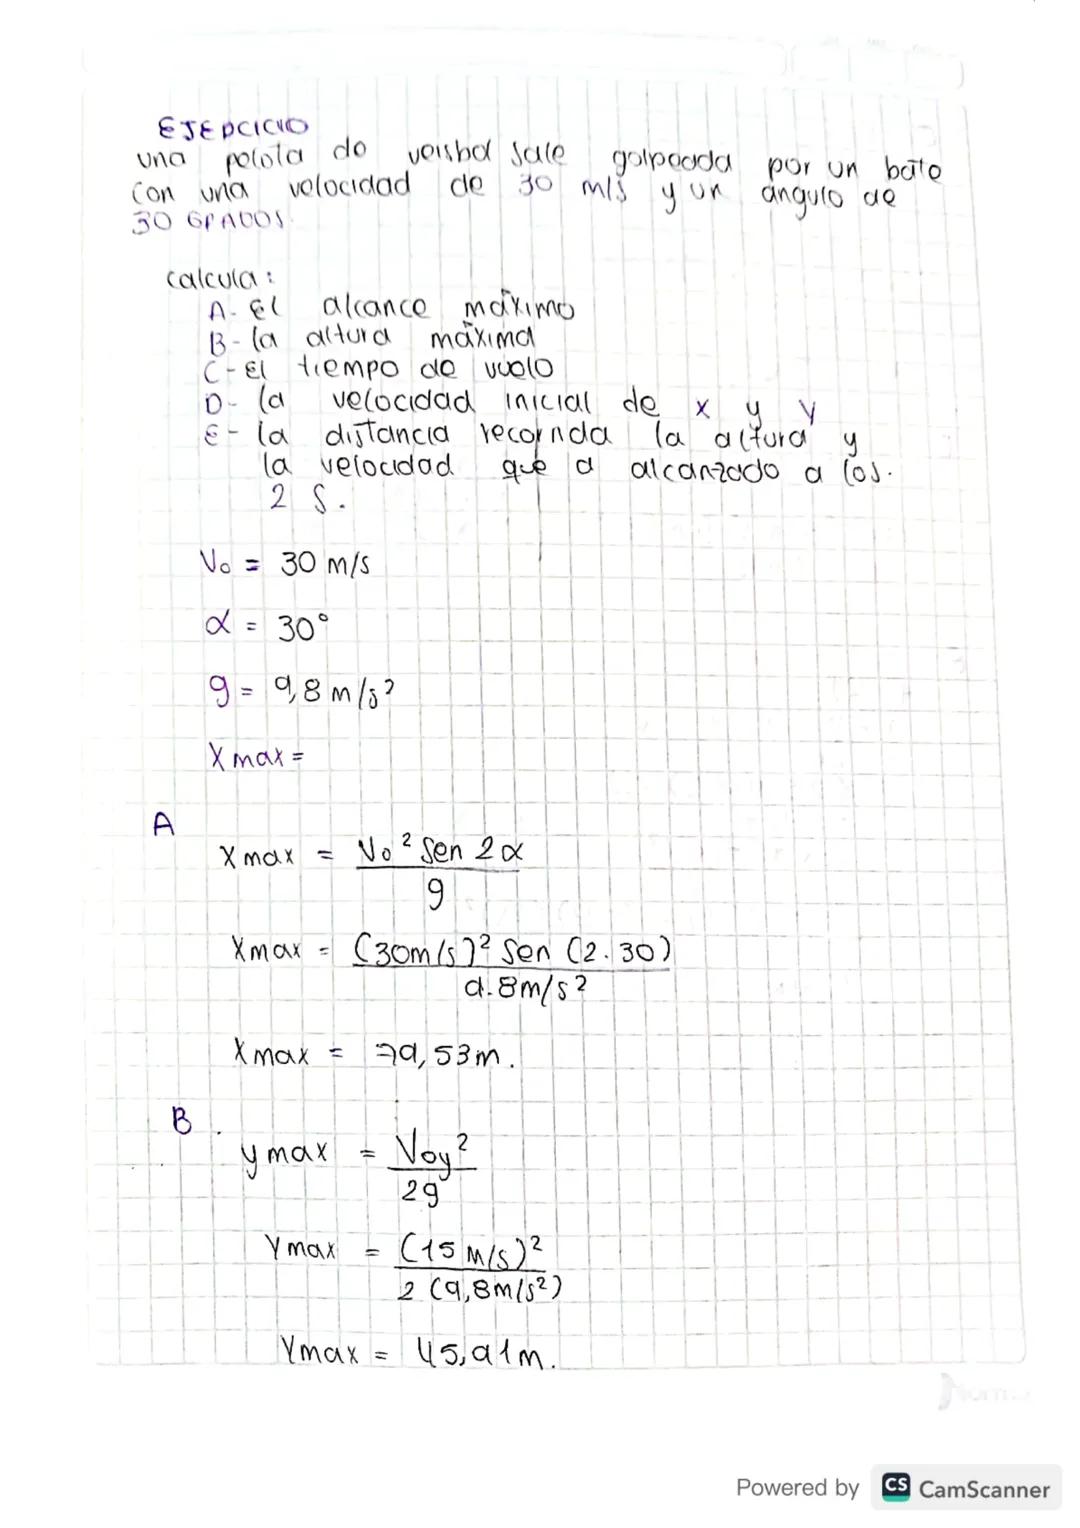 EJERCICIO
una pelota de veisbol sale golpeada por un bate
con una velocidad de 30 m/s y un ángulo de
30 GRADOS.
calcula:
A- El alcance máximo
B- la altura máxima
C- El tiempo de vuelo
D- la velocidad inicial de x y y
E- la distancia recorrida la altura y
la velocidad que a alcanzado a los.
2 s.
Vo = 30 m/s
α = 30°
g = 9,8 m/s²
Xmax =
A
Xmax = Vo² Sen 2α
g
Xmax = (30m/s)² Sen (2.30)
9.8m/s²
Xmax = 79,53m.
B.
ymax = Voy²
2g
Ymax = (15 m/s)²
2 (9,8m/s²)
Ymax = 45,91m.
Norma
Powered by CS CamScanner